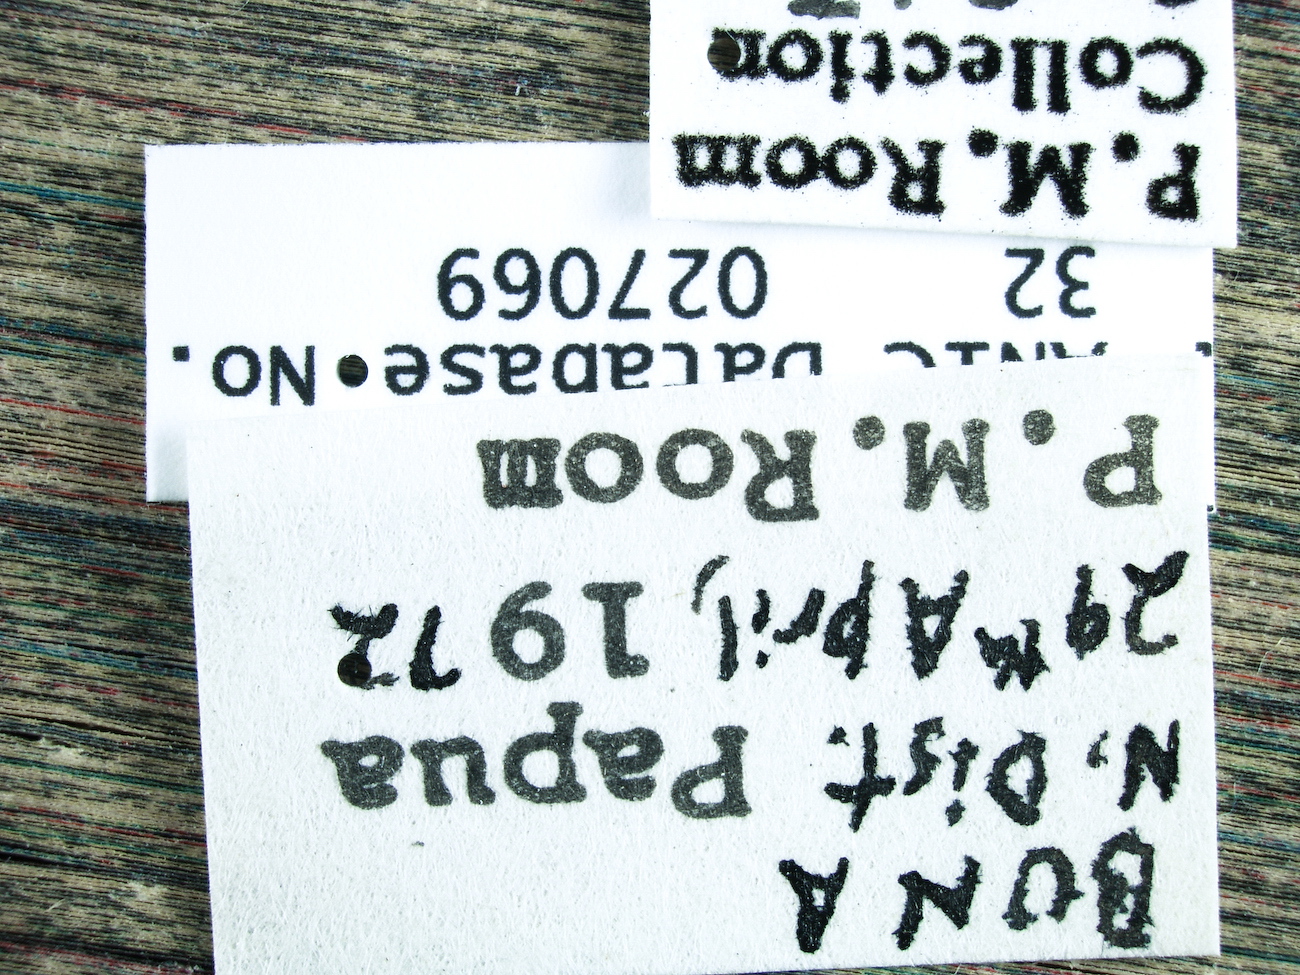 BUNA
N. Dist. Papua
29th April, 1972
P. M. Room
ANIC Database No.
32 027069
P. M. Room
Collection